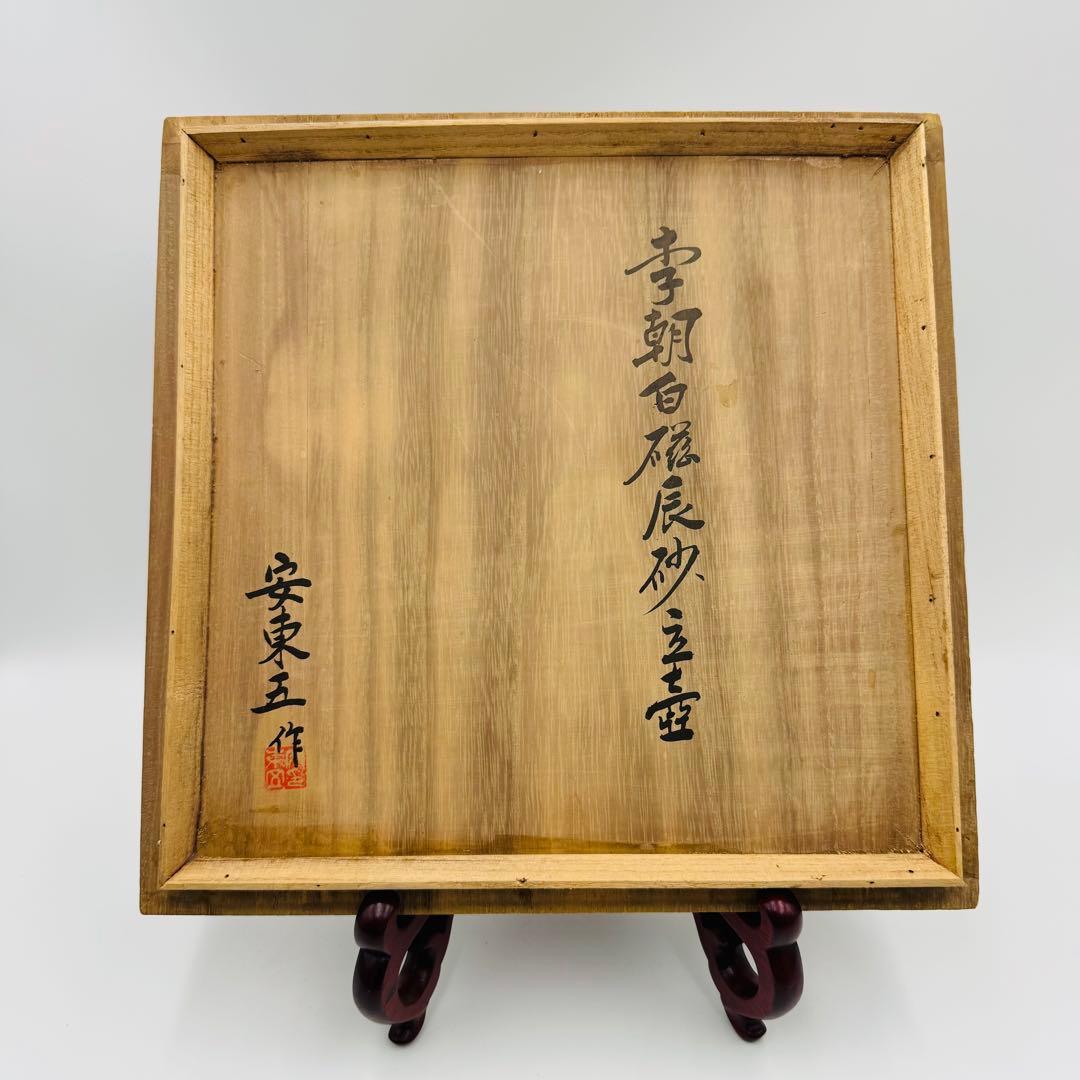 李朝白磁辰砂立壺
安東五作